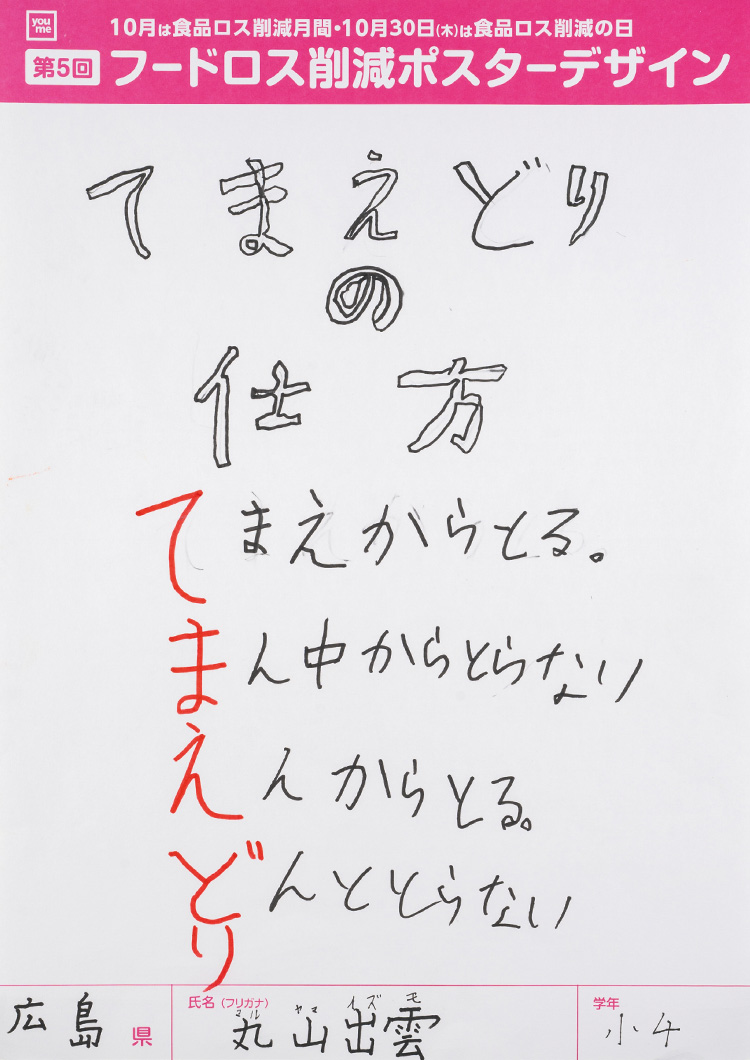 you me
10月は食品ロス削減月間・10月30日(木)は食品ロス削減の日
第5回 フードロス削減ポスターデザイン
てまえどり
の
仕方
てまえからとる。
まん中からとらない
えんからとる。
どんととらない
り
広島県
氏名(フリガナ)
マル ヤマ イズモ
丸山出雲
学年
小4